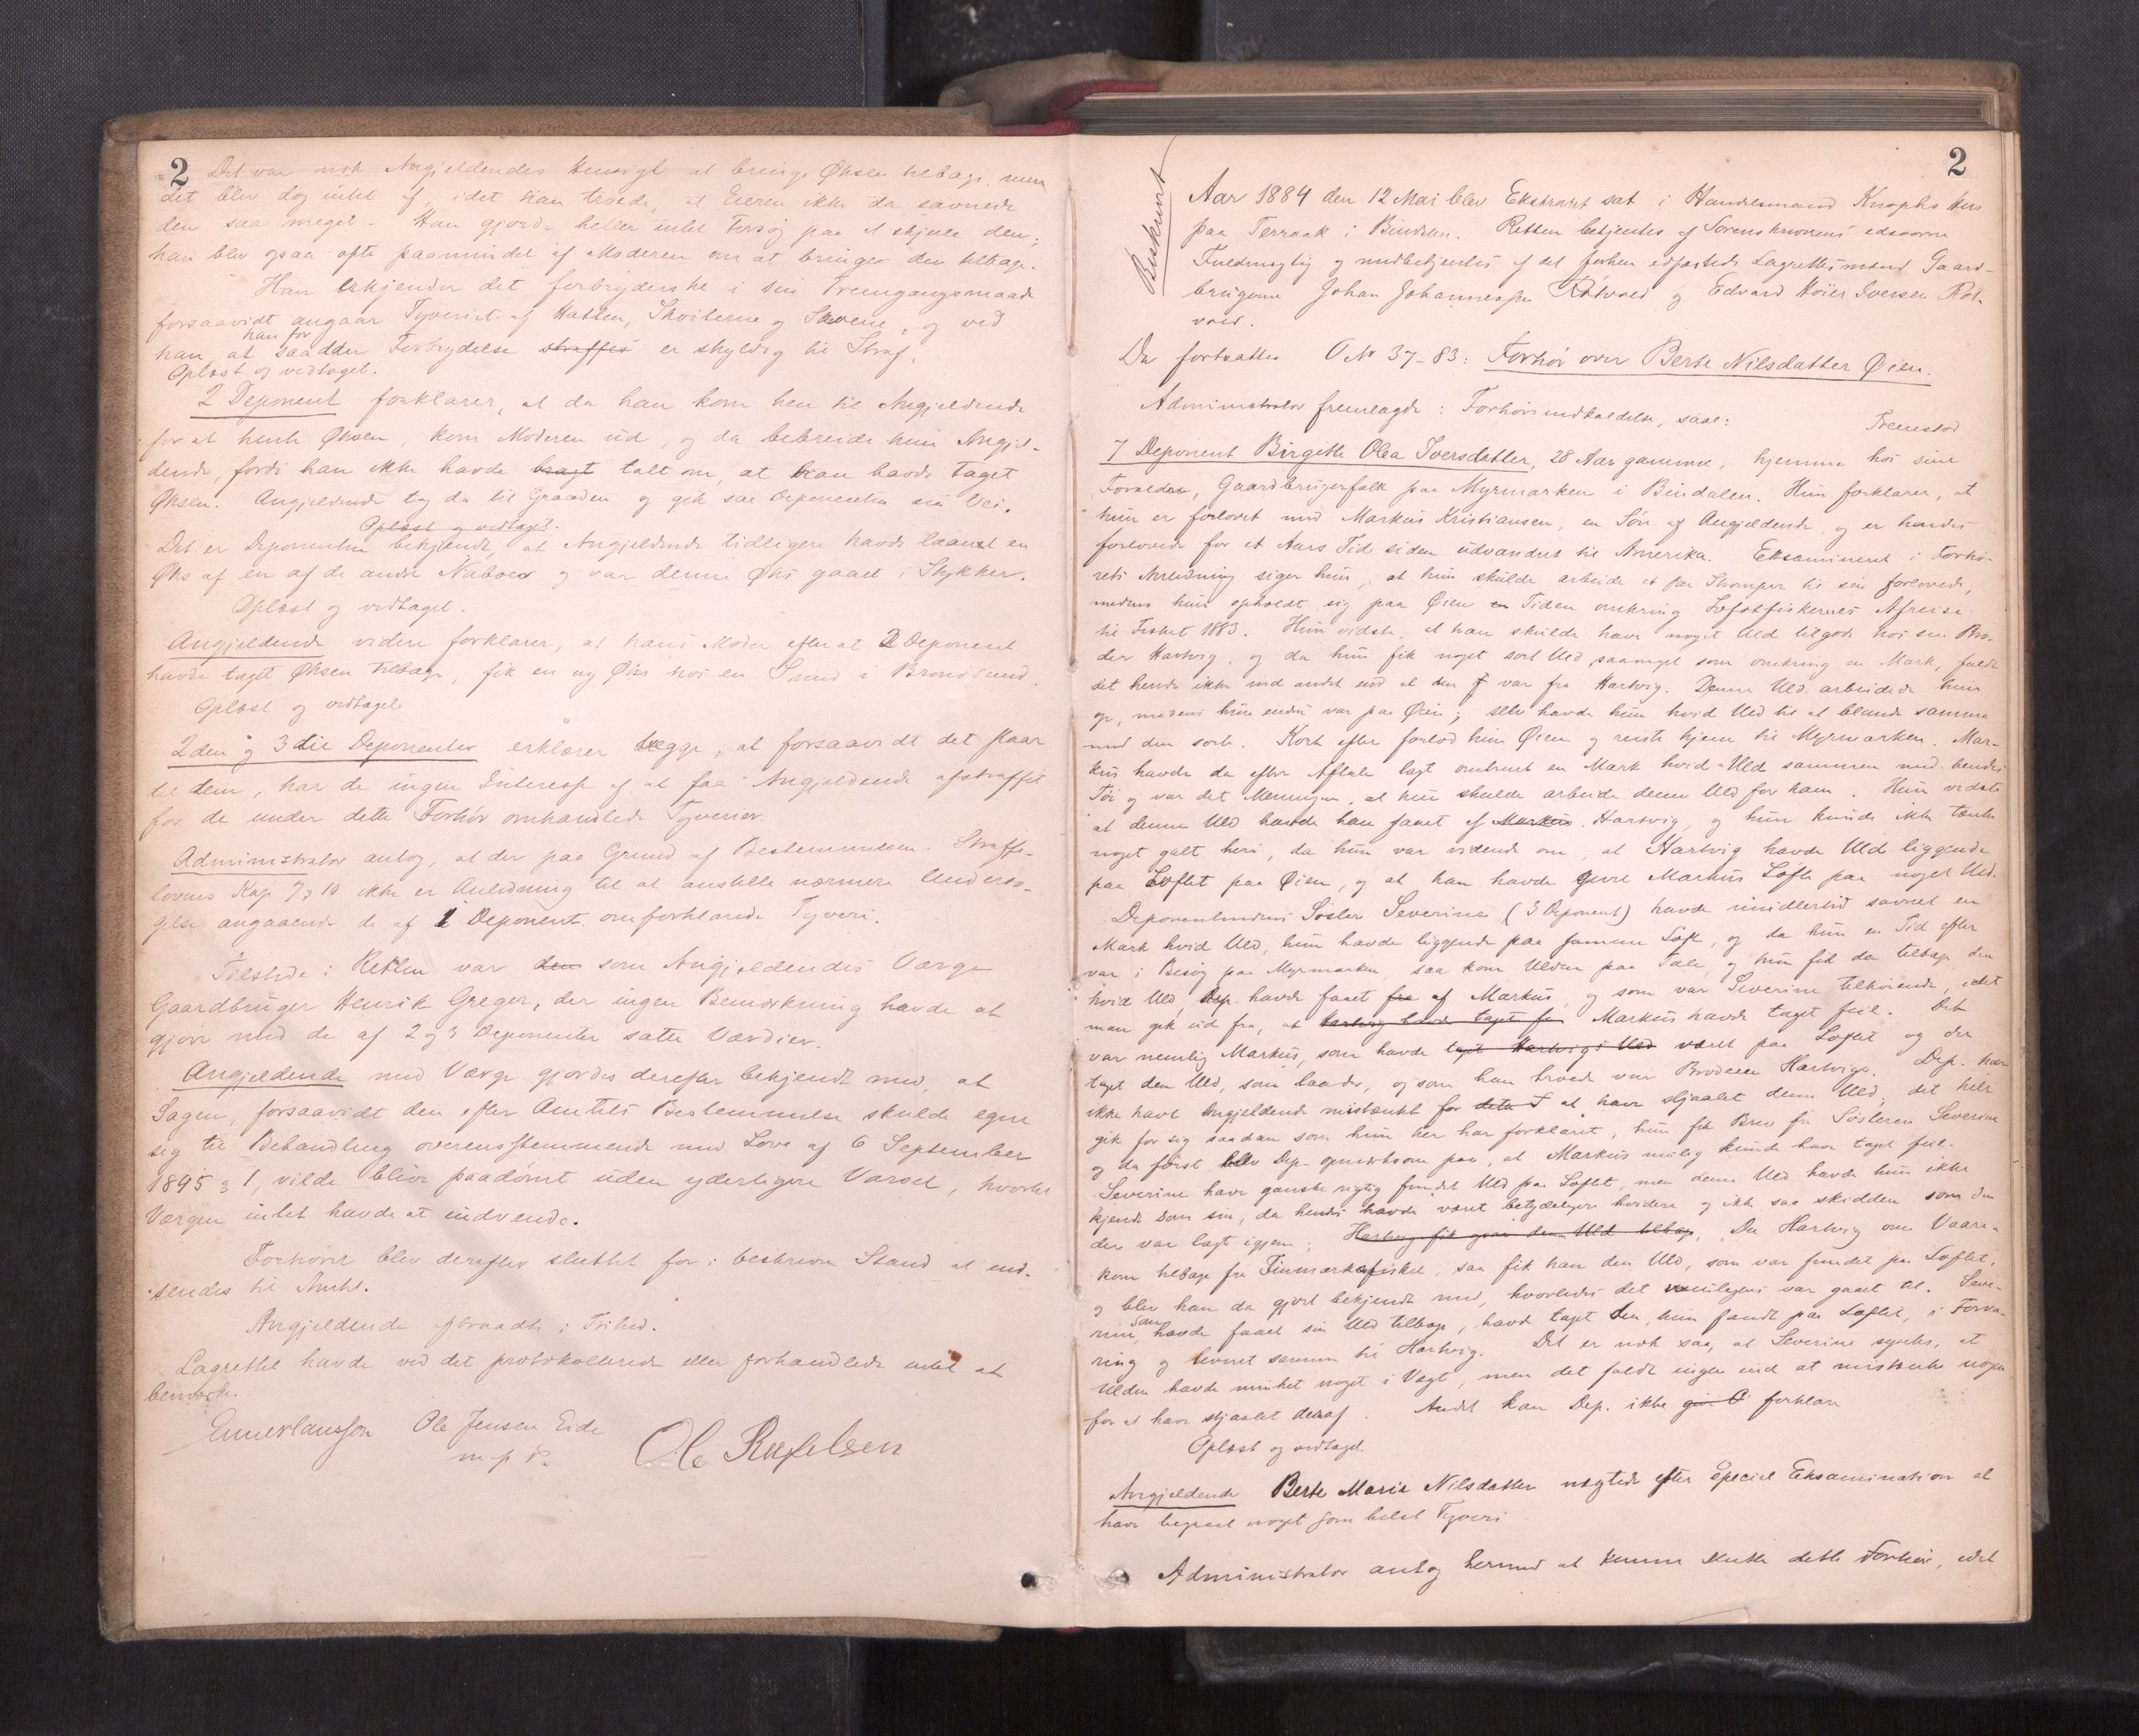 2 Det var nok Angjeldendes Hensigt at bringe Øksen tilbage, men
det blev dog intet af, idet han troede, at Eieren ikke da savnede
den saa meget. Han gjorde heller intet Forsøg paa at skjule den;
han blev ogsaa ofte paamindet af Moderen om at bringe den tilbage.
Han erkjender det forbryderske i sin Fremgangsmaade
forsaavidt angaar Tyveriet af Hatten, Skoiterne og , og ved
han, at han for saadden Forbrydelse straffes er skyldig til Straf.
Oplæst og vedtaget.
2 Deponent forklarer, at da han kom hen til Angjeldende
for at hente Øksen, kom Moderen ud, og da bebreide hun Angjel-
dende, fordi han ikke havde bragt talt om, at han havde taget
Øksen. Angjeldende tog da til Graaden og gik saa Deponenten sin Vei.
Oplæst og vedtaget.
Det er Deponenten bekjendt, at Angjeldende tidligere havde laant en
Øks af en af de andre Naboer og var denne Øks gaaet i Stykker.
Oplæst og vedtaget.
Angjeldende videre forklarer, at hans Moder efter at 2 Deponent
havde taget Øksen tilbage, fik en ny Øks hos en Smed i Brønøsund.
Oplæst og vedtaget
2den og 3die Deponenter erklærer begge, at forsaavidt det staar
til dem, har de ingen Interesse af at faa Angjeldende afstraffet
for de under dette Forhør omhandlede Tyverier.
Administrator antog, at der paa Grund af Bestemmelsen i Straffe-
lovens Kap 7 § 10 ikke er Anledning til at anstille nærmere Undersø-
gelse angaaende de af 1 Deponent omforklarede Tyveri.
Tilstede i Retten var den som Angjeldendes Værge
Gaardbruger Henrik Greger, der ingen Bemærkning havde at
gjøre med de af 2 og 3 Deponenter satte Værdier.
Angjeldende med Værge gjordes derefter bekjendt med, at
Sagen, forsaavidt den efter Amtets Bestemmelse skulde egne
sig til Behandling overensstemmende med Lov af 6 September
1845 § 1, vilde blive paadømt uden yderligere Varsel, hvortil
Værgen intet havde at indvende.
Forhøret blev derefter sluttet for i beskreven Stand at ind-
sendes til Amtet.
Angjeldende aftraadte i Frihed.
Lagrettet havde ved det protokollerede eller forhandlede intet at
bemærke.
Ole Jensen Eide
m. p. P.
Ole Rafelsen
2
Beskrevet
Aar 1884 den 12 Mai blev Ekstraret sat i Handelsmand Knophs Hus
paa Terraak i Bindalen. Retten betjentes af Sorenskriverens edsvorne
Fuldmægtig og medbetjentes af det forhen edfæstede Lagrettesmænd Gaard-
brugerne Johan Johannessen Røtvold og Edvard Høier Iversen Røt-
vold.
Da fortsattes O No 37-83: Forhør over Berte Nilsdatter Øien.
Administrator fremlagde: Forhørsindkaldelse, saal:
Fremstod
7 Deponent Birgitte Olea Iversdatter, 28 Aar gammel, hjemme hos sine
Forældre, Gaardbrugerfolk paa Myrmarken i Bindalen. Hun forklarer, at
hun er forlovet med Markus Kristiansen, en Søn af Angjeldende, og er hendes
forlovede for et Aars Tid siden udvandret til Amerika. Eksamineret i Forhø-
rets Anledning siger hun, at hun skulde arbeide et Par Strømper til sin forlovede,
medens hun opholdt sig paa Øien en Tiden omkring Lofotfiskernes Afreise
til Fisket 1883. Hun vidste, at han skulde have noget Uld tilgode hos sin Bro-
der Hartvig, og da hun fik noget sort Uld, saameget som omkring en Mark, faldt
det hende ikke ind andet end at den var fra Hartvig. Denne Uld arbeidede hun
op, medens hun endnu var paa Øien; selv havde hun hvid Uld til at blande sammen
med den sorte. Kort efter forlod hun Øien og reiste hjem til Myrmarken. Mar-
kus havde da efter Aftale lagt omtrent en Mark hvid Uld sammen med hendes
Tøi og var det Meningen, at hun skulde arbeide denne Uld for ham. Hun vidste
at denne Uld havde han faaet af Markus Hartvig, og hun kunde ikke tænke
noget galt heri, da hun var vidende om, at Hartvig havde Uld liggende
paa Loftet paa Øien, og at han havde givet Markus Løfte paa noget Uld.
Deponentindens Søster Severine (3 Deponent) havde imidlertid savnet en
Mark hvid Uld, hun havde liggende paa samme Loft, og da hun en Tid efter
var i Besøg paa Myrmarken, saa kom Ulden paa Tale, og hun fik da tilbage den
hvid Uld, Dep. havde faaet fra af Markus, og som var Severine tilhørende, idet
man gik ud fra, at Hartvig havde taget fe Markus havde taget feil. Det
var nemlig Markus, som havde taget Hartvigs Uld været paa Loftet og der
taget den Uld, som laades, og som han troede var Broderen Hartvigs. Dep. har
ikke havt Angjeldende mistænkt for dette T at have stjaalet denne Uld; det hele
gik for sig saadan som hun her har forklaret; hun fik Brev fra Søsteren Severine
og da først blev Dep. opmærksom paa, at Markus mulig kunde have taget feil.
Severine have ganske rigtig fundet Uld paa Loftet, men denne Uld havde hun ikke
kjendt som sin, da hendes havde været betydeligere hvidere og ikke saa skidden som den
der var lagt igjen; Hartvig fik den Uld tilbage. Da Hartvig om Vaaren
kom tilbage fra Finmarksfisket, saa fik han den Uld, som var fundet paa Loftet,
og blev han da gjort bekjendt med, hvorledes det var gaaet til. Seve-
rine, som havde faaet sin Uld tilbage, havde taget den, hun fandt paa Loftet, i Forva-
ring og leveret samme til Hartvig. Det er nok saa, at Severine syntes, at
Ulden havde minket noget i Vægt, men det faldt ingen ind at mistænke nogen
for at have stjaalet deraf. Andet kan Dep. ikke give O forklare
Oplæst og vedtaget.
Angjeldende Berte Marie Nilsdatter negtede efter speciel Eksamination at
have begaaet noget som helst Tyveri
Administrator antog hermed at kunne slutte dette Forhør, idet